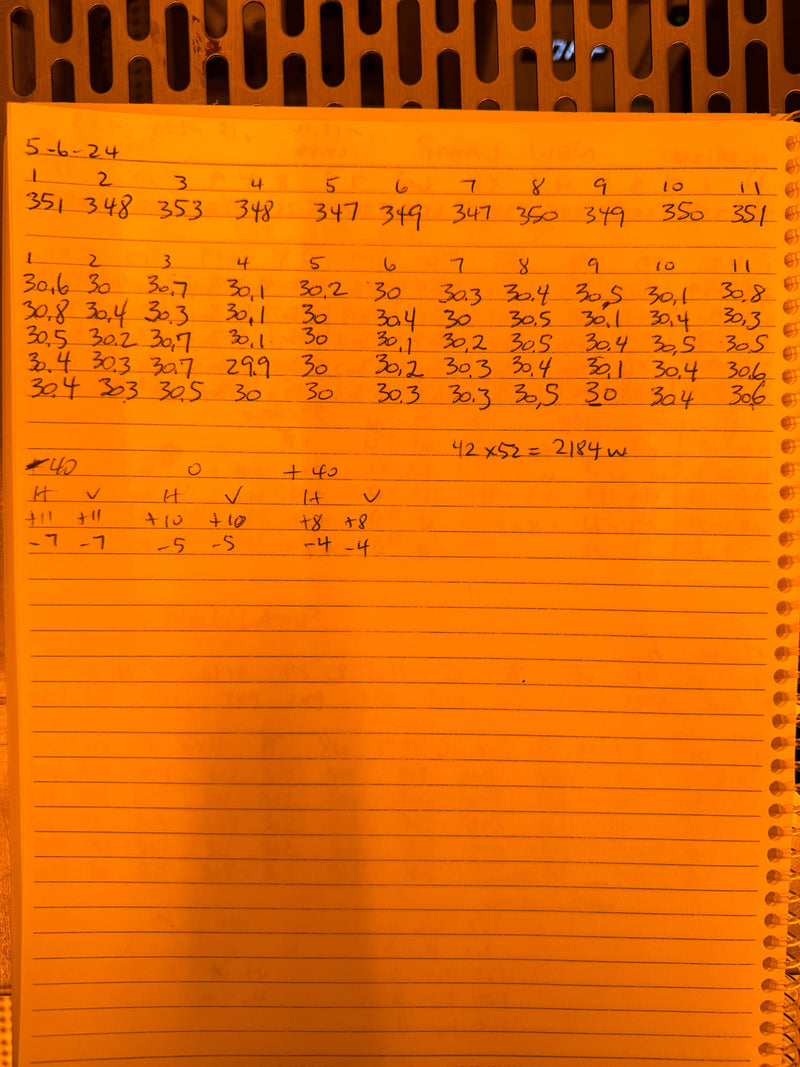 5-6-24
1 2 3 4 5 6 7 8 9 10 11
351 348 353 348 347 349 347 350 349 350 351
1 2 3 4 5 6 7 8 9 10 11
30.6 30 30.7 30.1 30.2 30 30.3 30.4 30.5 30.1 30.8
30.8 30.4 30.3 30.1 30 30.4 30 30.5 30.1 30.4 30.3
30.5 30.2 30.7 30.1 30 30.1 30.2 30.5 30.4 30.5 30.5
30.4 30.3 30.7 29.9 30 30.2 30.3 30.4 30.1 30.4 30.6
30.4 303 30.5 30 30 30.3 30.3 30.5 30 30.4 30.6
42 x 52 = 2184 w
-40 0 +40
H V H V H V
+11 +11 +10 +10 +8 +8
-7 -7 -5 -5 -4 -4